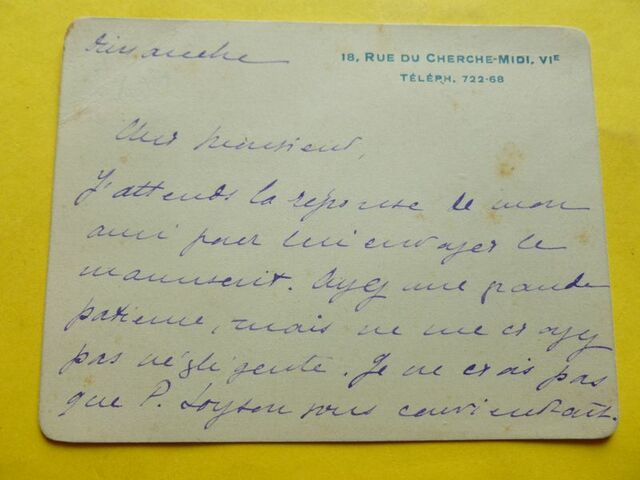 dimanche
18, RUE DU CHERCHE-MIDI, VIE
TÉLÉPH. 722-68
Cher monsieur,
J'attends la réponse de mon
ami pour lui envoyer le
manuscrit. Ayez une grande
patience, mais ne me croyez
pas négligente. Je ne crois pas
que P. Loyson vous conviendrait.